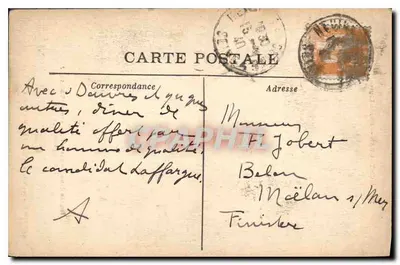 CARTE POSTALE
Correspondance
Adresse
Avec Douvres et qques
autres, diner de
qualité offert par
un homme de qualité:
le candidat Laffargue.
A
Monsieur
F. Jobert
Belon
Moëlan s/ Mer
Finistere
CPAPHIL.com